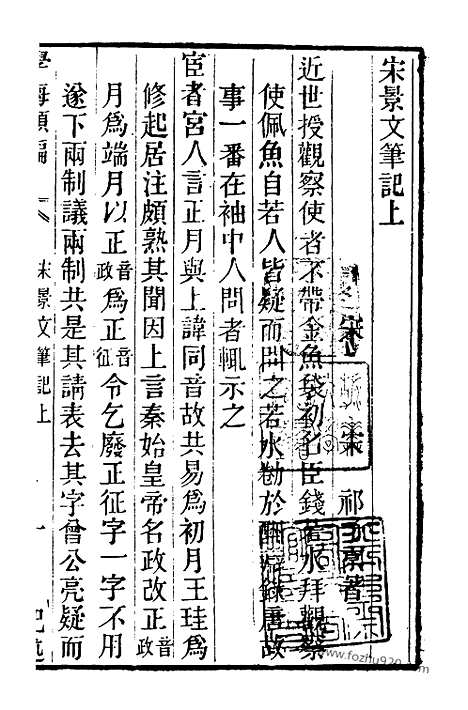 宋景文筆記上
宋　宋　祁子京著
近世授觀察使者不帶金魚袋初名臣錢若水拜觀察
使佩魚自若人皆疑而問之若水勌於酬錄唐故
事一番在袖中人問者輒示之
宦者宮人言正月與上諱同音故共易爲初月王珪爲
修起居注頗熟其聞因上言秦始皇帝名政改正音政
月爲端月以正音政爲正音征令乞廢正征字一字不用
遂下兩制議兩制共是其請表去其字曾公亮疑而
學海類編
宋景文筆記上
一
www.fozhu920.com